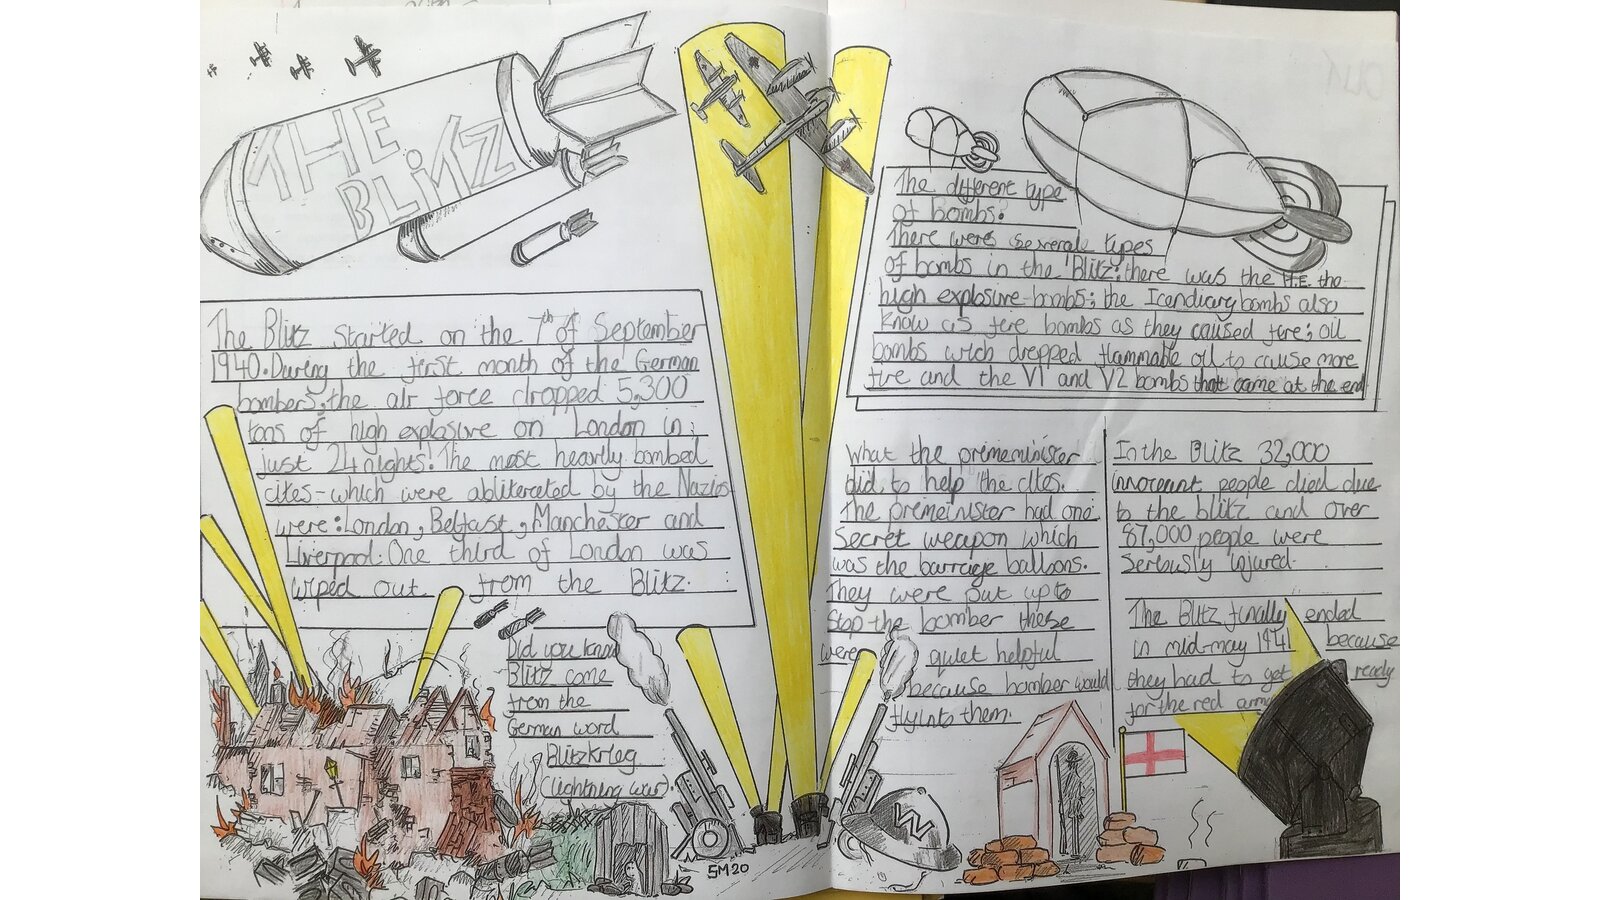 THE
BLITZ
The Blitz started on the 7th of September
1940. During the first month of the German
bombers, the air force dropped 5,300
tons of high explosive on London in
just 24 nights! The most heavily bombed
cites - which were abliterated by the Nazios
were: London, Belfast, Manchester and
Liverpool. One third of London was
wiped out from the Blitz.
Did you know
Blitz come
from the
German word
Blitzkrieg
(lightning war).
SM20
The different type
of bombs.
There were several types
of bombs in the Blitz: there was the H.E. the
high explosive bombs; the Icendiary bombs also
know as fire bombs as they caused fire; oil
bombs wich dropped flammable oil to cause more
fire and the V1 and V2 bombs that came at the end
What the premeinister
did to help the cites.
The premeinister had one
Secret weapon which
was the barrage balloons.
They were put up to
stop the bomber these
were quiet helpful
because bomber would
fly into them.
In the Blitz 32,000
innoceant people died due
to the blitz and over
87,000 people were
Seriously injured.
The Blitz finally ended
in mid-may 1941 because
they had to get ready
for the red army
W